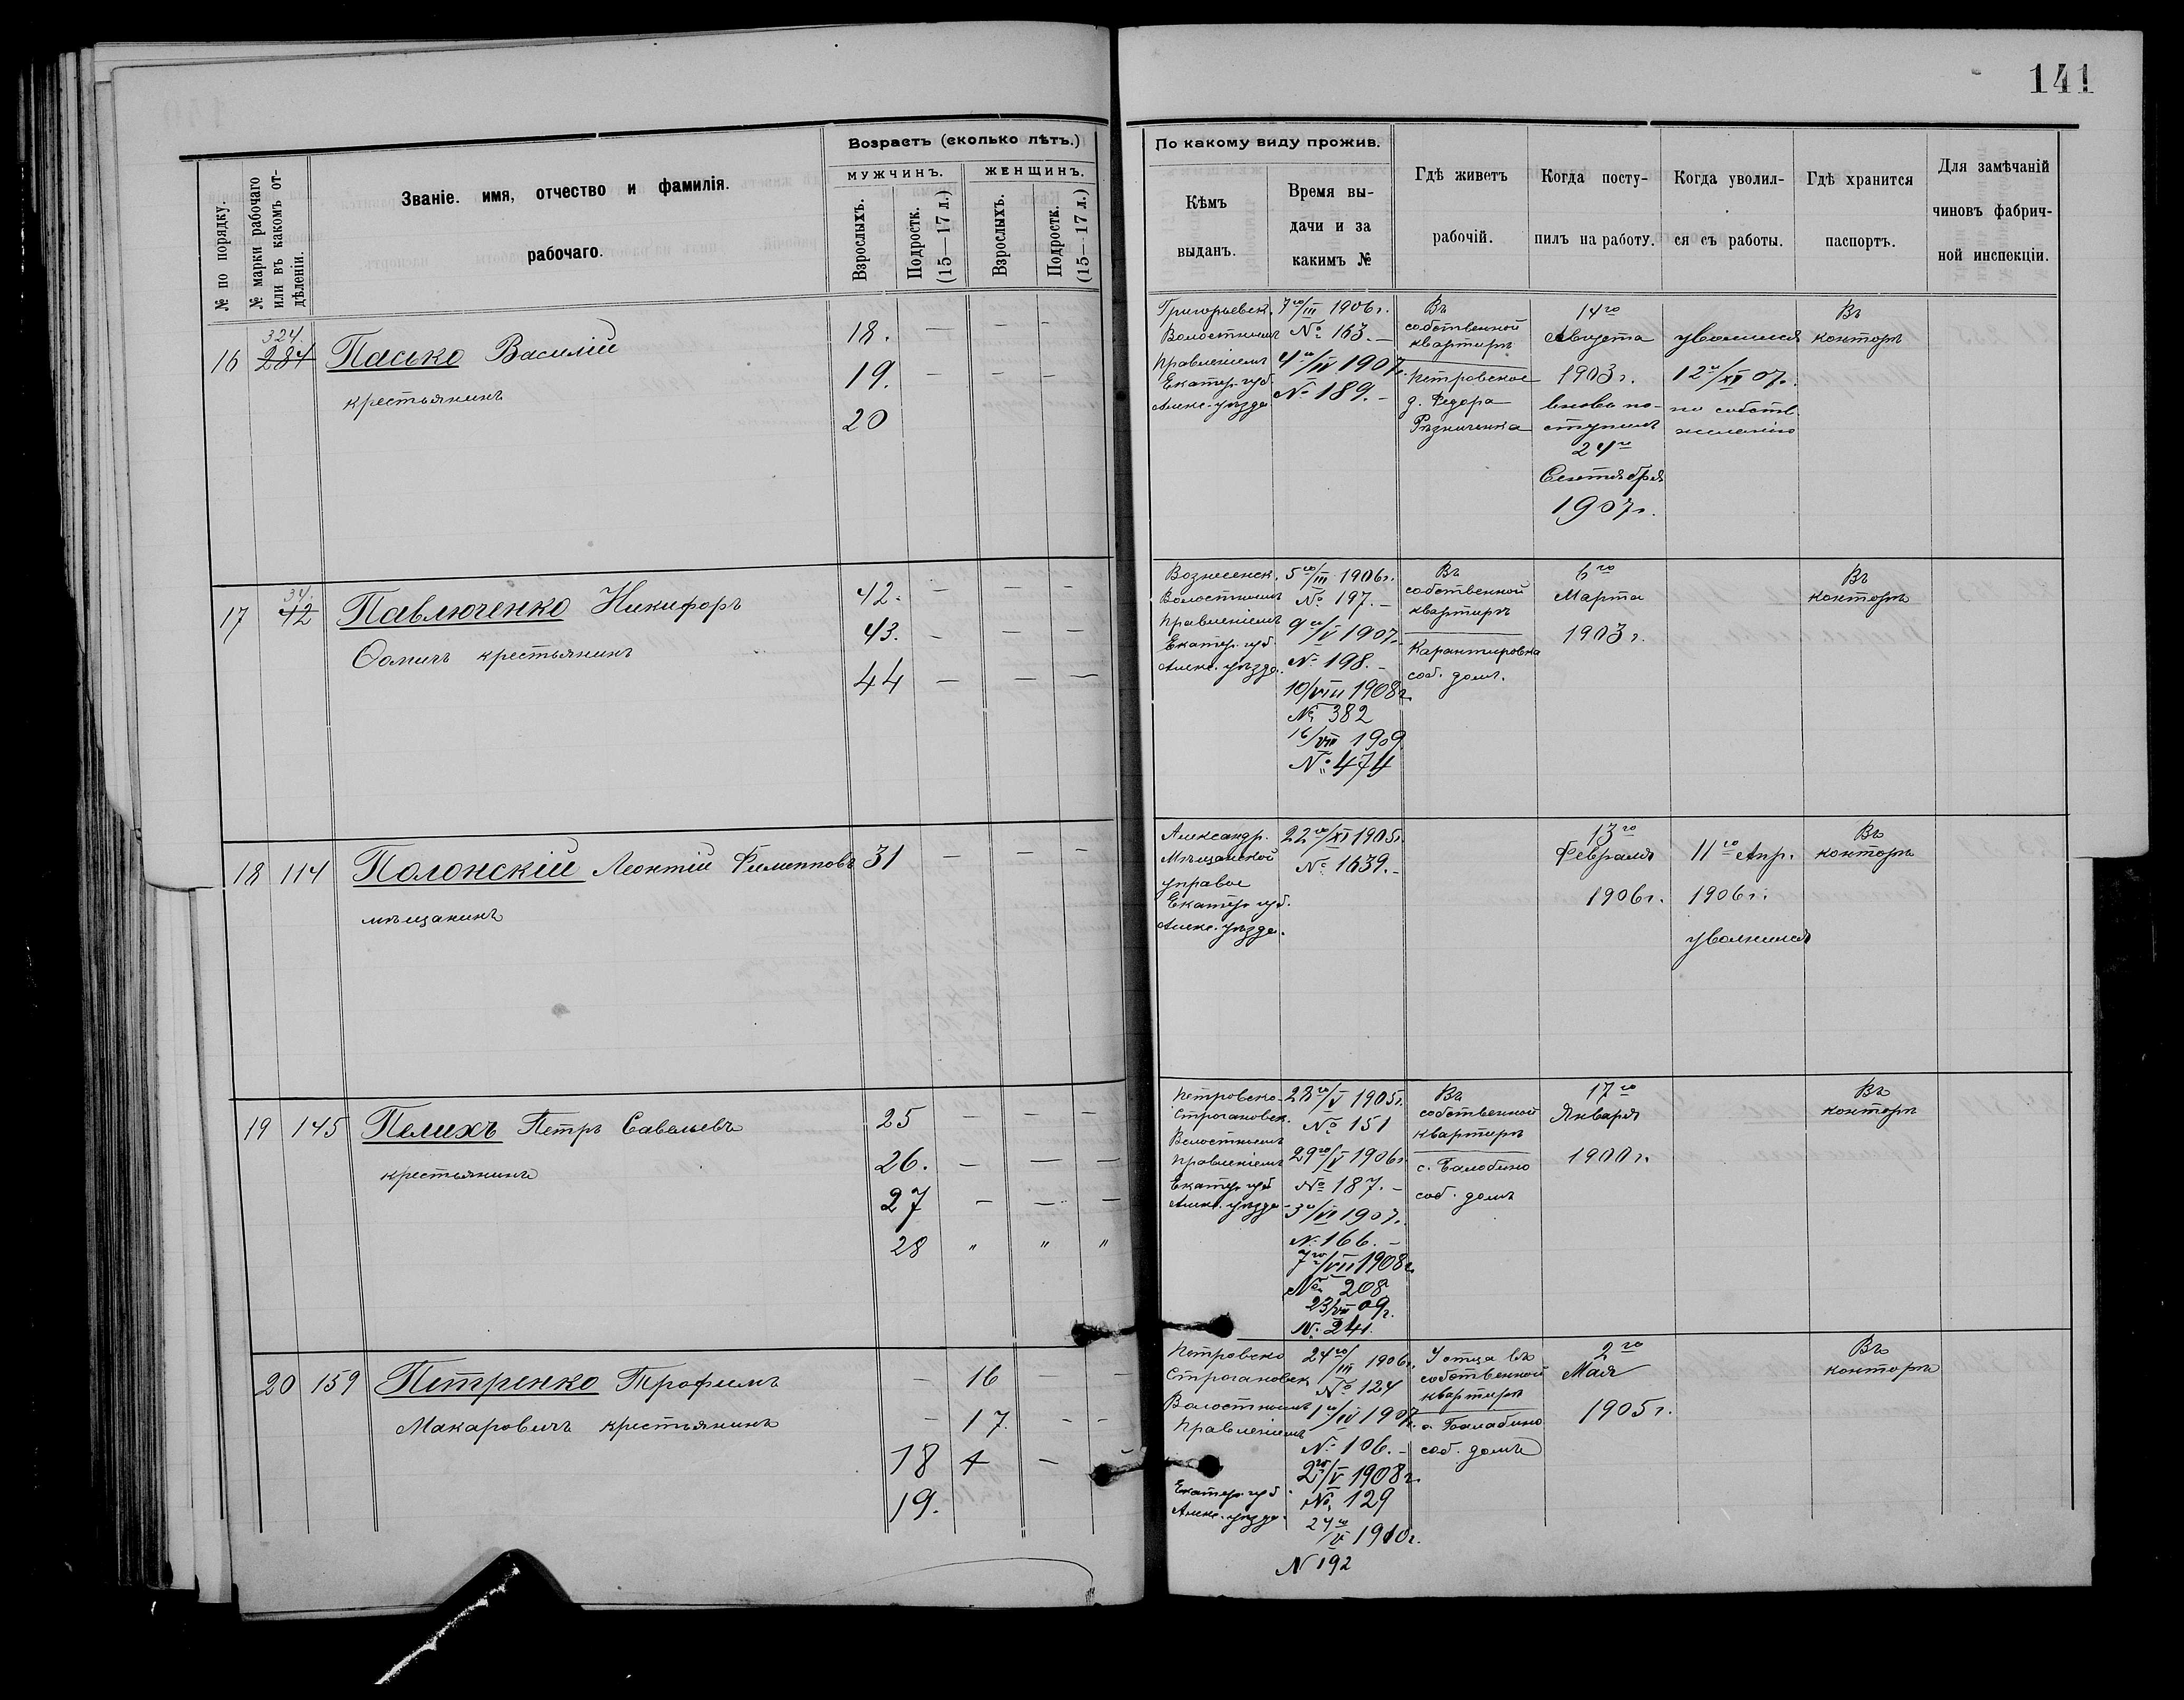 141
Возрастъ (сколько лѣтъ.)
МУЖЧИНЪ. ЖЕНЩИНЪ.
№ по порядку.
№ марки рабочаго или въ какомъ от-
дѣленіи.
Званіе. имя, отчество и фамилія.
рабочаго.
Взрослыхъ.
Подростк.
(15—17 л.)
Взрослыхъ.
Подростк.
(15—17 л.)
По какому виду прожив.
Кѣмъ
выданъ.
Время вы-
дачи и за
какимъ №
Гдѣ живетъ
рабочій.
Когда посту-
пилъ на работу.
Когда уволил-
ся съ работы.
Гдѣ хранится
паспортъ.
Для замѣчаній
чиновъ фабрич-
ной инспекціи.
324.
16 284 Пасько Василій
крестьянинъ
18. — — -
19. — — —
20
Григорьевск.
Волостнымъ
Правленіемъ
Екатер. губ.
Алекс. уѣзда
7го/III 1906 г.
№ 163.—
4го/IV 1907.
№ 189.—
Въ
собственной
квартирѣ
Петровское
д. Федора
Рѣзниченка
14го
Августа
1903 г.
вновь по-
ступилъ
24го
Сентября
1907 г.
уволился
12го/XI 07 г.
по собств.
желанію
Въ
конторѣ
34.
17 42 Павлюченко Никифоръ
Ѳомичъ крестьянинъ
42. — — —
43. — — —
44 — — —
Вознесенск.
Волостнымъ
Правленіемъ
Екатер. губ.
Алекс. уѣзда.
5го/III 1906 г.
№ 197.—
9го/V 1907 г.
№ 198.—
10/VIII 1908 г.
№ 382
16/VIII 1909
№ 474
Въ
собственной
квартирѣ
Карантировка
соб. домъ.
6го
Марта
1903 г.
Въ
конторѣ
18 114 Полонскій Леонтій Филипповъ
мѣщанинъ
31 — — —
Александр.
Мѣщанской
управою
Екатер. губ.
Алекс. уѣзда.
22го/XI 1905 г.
№ 1639.—
13го
Февраля
1906 г.
11го Апр.
1906 г.
уволился
Въ
конторѣ
19 145 Пелихъ Петръ Савельевъ
крестьянинъ
25 — — —
26. — — —
27 — — —
28 " " "
Петровско-
Строгановск.
Волостнымъ
Правленіемъ
Екатер. губ.
Алекс. уѣзда
28го/V 1905 г.
№ 151
29го/V 1906 г.
№ 187.—
3го/VI 1907 г.
№ 166.—
7го/VII 1908 г.
№ 208
23/VII 09 г.
№ 241.
Въ
собственной
квартирѣ
с. Балабино
соб. домъ
17го
Января
1900 г.
Въ
конторѣ
20 159 Петренко Трофимъ
Макаровичъ крестьянинъ
— 16 — —
— 17. — —
18 —
19.
Петровско
Строгановск
Волостнымъ
Правленіемъ
Екатер. губ.
Алекс. уѣзда.
24го/III 1906 г.
№ 124
1го/IV 1907 г.
№ 106.—
2го/V 1908 г.
№ 129
24го/V 1910 г.
№ 192
У отца въ
собственной
квартирѣ
с. Балабино
соб. домъ
2го
Мая
1905 г.
Въ
конторѣ